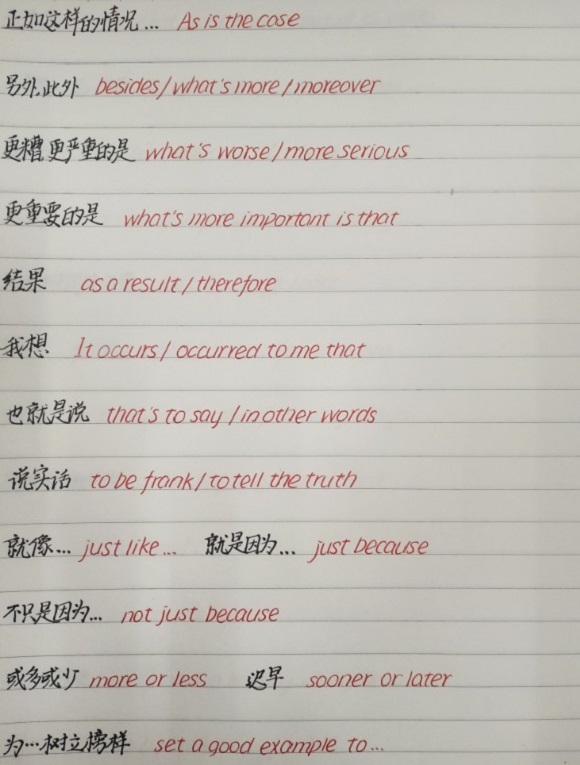 正如这样的情况... As is the case
另外,此外 besides/what's more/moreover
更糟,更严重的是 what's worse/more serious
更重要的是 what's more important is that
结果 as a result/therefore
我想 It occurs/occurred to me that
也就是说 that's to say/in other words
说实话 to be frank/to tell the truth
就像... just like... 就是因为... just because
不只是因为... not just because
或多或少 more or less 迟早 sooner or later
为...树立榜样 set a good example to...